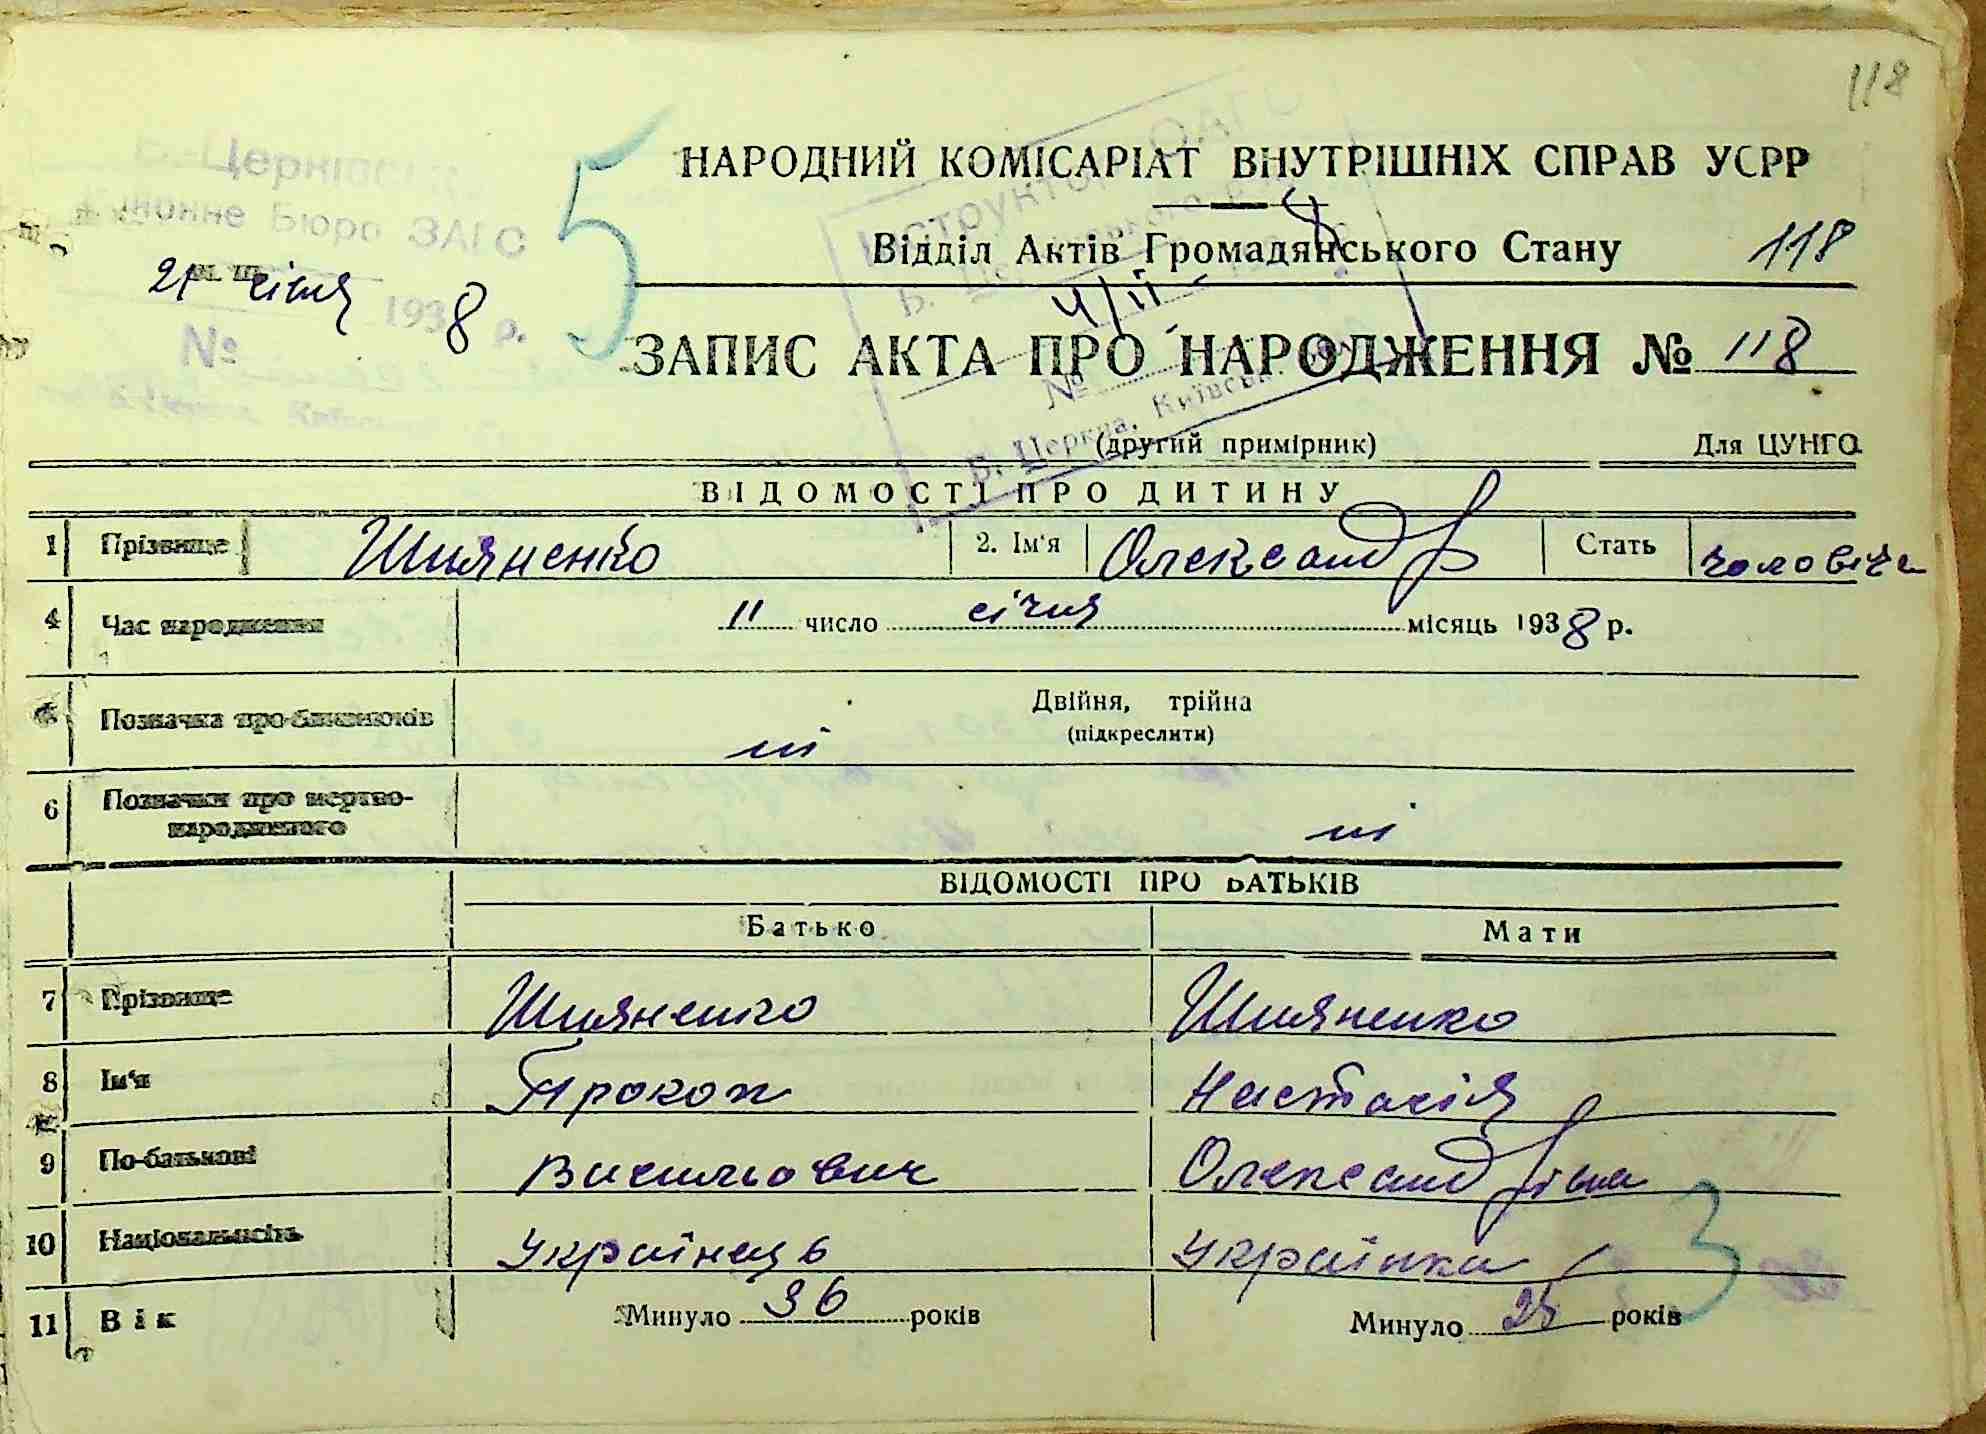 118
НАРОДНИЙ КОМІСАРІАТ ВНУТРІШНІХ СПРАВ УСРР
Б.-Церківськ
Бюро ЗАГС
5
Відділ Актів Громадянського Стану 118
21 січня 1938 р.
4/II
№
ЗАПИС АКТА ПРО НАРОДЖЕННЯ № 118
№
Б. Церква, Київськ
(другий примірник) Для ЦУНГО
ВІДОМОСТІ ПРО ДИТИНУ
1 Прізвище Шияненко 2. Ім'я Олександр Стать чоловіча
4 Час народження 11 число січня місяць 1938 р.
Позначка про близнюків Двійня, трійна
(підкреслити)
ні
6 Позначки про мертво-
народженого ні
ВІДОМОСТІ ПРО БАТЬКІВ
Батько Мати
7 Прізвище Шияненко Шияненко
8 Ім'я Прокоп Настасія
9 По-батькові Васильович Олександрівна
10 Національність Українець Українка 3
11 Вік Минуло 36 років Минуло років